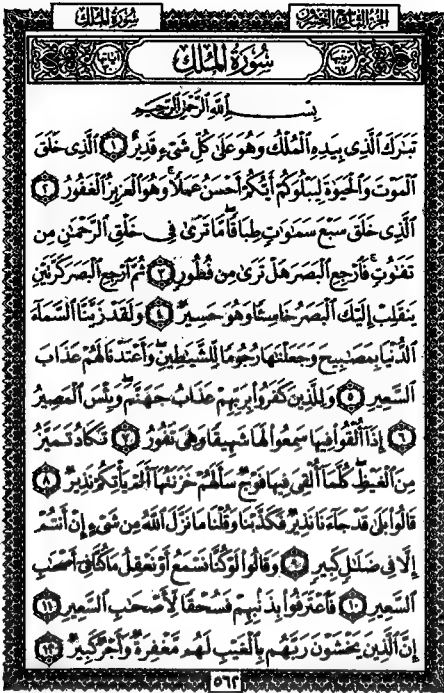 سُورَةُ المُلْكِ
الجُزْءُ التَّاسِعُ وَالعِشْرُونَ
سُورَةُ المُلْكِ
بِسْمِ اللَّهِ الرَّحْمَٰنِ الرَّحِيمِ
تَبَارَكَ الَّذِي بِيَدِهِ الْمُلْكُ وَهُوَ عَلَىٰ كُلِّ شَيْءٍ قَدِيرٌ ١ الَّذِي خَلَقَ
الْمَوْتَ وَالْحَيَوٰةَ لِيَبْلُوَكُمْ أَيُّكُمْ أَحْسَنُ عَمَلًا ۚ وَهُوَ الْعَزِيزُ الْغَفُورُ ٢
الَّذِي خَلَقَ سَبْعَ سَمَاوَاتٍ طِبَاقًا ۖ مَّا تَرَىٰ فِي خَلْقِ الرَّحْمَٰنِ مِن
تَفَاوُتٍ ۖ فَارْجِعِ الْبَصَرَ هَلْ تَرَىٰ مِن فُطُورٍ ٣ ثُمَّ ارْجِعِ الْبَصَرَ كَرَّتَيْنِ
يَنقَلِبْ إِلَيْكَ الْبَصَرُ خَاسِئًا وَهُوَ حَسِيرٌ ٤ وَلَقَدْ زَيَّنَّا السَّمَاءَ
الدُّنْيَا بِمَصَابِيحَ وَجَعَلْنَاهَا رُجُومًا لِّلشَّيَاطِينِ ۖ وَأَعْتَدْنَا لَهُمْ عَذَابَ
السَّعِيرِ ٥ وَلِلَّذِينَ كَفَرُوا بِرَبِّهِمْ عَذَابُ جَهَنَّمَ ۖ وَبِئْسَ الْمَصِيرُ
٦ إِذَا أُلْقُوا فِيهَا سَمِعُوا لَهَا شَهِيقًا وَهِيَ تَفُورُ ٧ تَكَادُ تَمَيَّزُ
مِنَ الْغَيْظِ ۖ كُلَّمَا أُلْقِيَ فِيهَا فَوْجٌ سَأَلَهُمْ خَزَنَتُهَا أَلَمْ يَأْتِكُمْ نَذِيرٌ ٨
قَالُوا بَلَىٰ قَدْ جَاءَنَا نَذِيرٌ فَكَذَّبْنَا وَقُلْنَا مَا نَزَّلَ اللَّهُ مِن شَيْءٍ إِنْ أَنتُمْ
إِلَّا فِي ضَلَالٍ كَبِيرٍ ٩ وَقَالُوا لَوْ كُنَّا نَسْمَعُ أَوْ نَعْقِلُ مَا كُنَّا فِي أَصْحَابِ
السَّعِيرِ ١٠ فَاعْتَرَفُوا بِذَنبِهِمْ فَسُحْقًا لِّأَصْحَابِ السَّعِيرِ ١١
إِنَّ الَّذِينَ يَخْشَوْنَ رَبَّهُم بِالْغَيْبِ لَهُم مَّغْفِرَةٌ وَأَجْرٌ كَبِيرٌ ١٢
٥٦٢